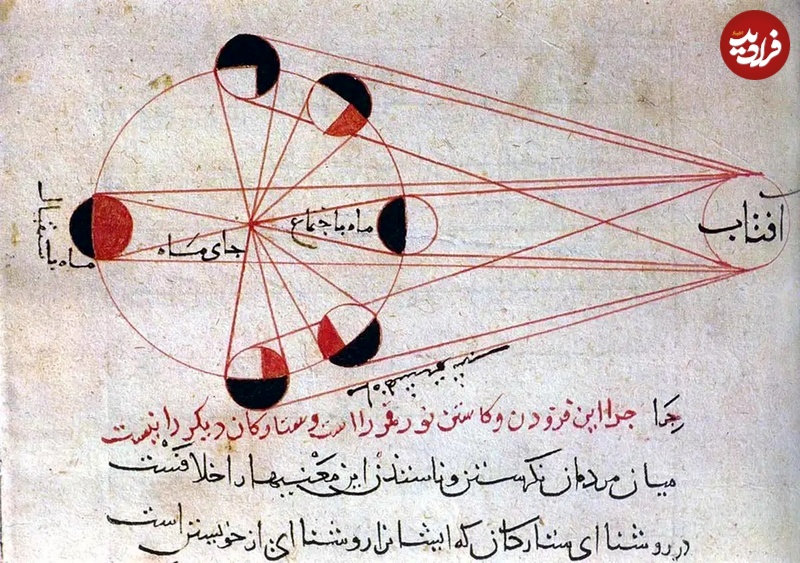 فرادید
اخبار
آفتاب
ماه باجتماع
جای ماه
ماه باستقبال
چرا این فزودن و کاستن نور قمر را است و ستارگان دیگر را نیست
میان مردمان نگرستن و
این معنیها را خلافست
در روشنا ای ستارگان که ایشانرا روشنا ای از خویشتن است